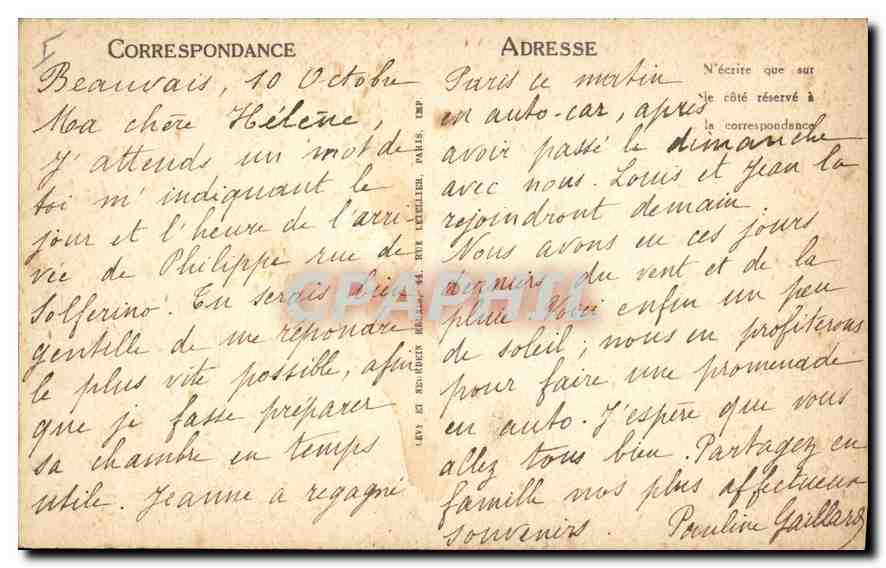 CORRESPONDANCE
Beauvais, 10 Octobre
Ma chère Hélène,
J'attends un mot de
toi m'indiquant le
jour et l'heure de l'arri-
vée de Philippe rue de
Solferino. Tu serais bien
gentille de me répondre
le plus vite possible, afin
que je fasse préparer
sa chambre en temps
utile. Jeanne a regagné
LEVY ET NEURDEIN REUNIS, 44, RUE LETELLIER, PARIS, IMP.
ADRESSE
N'écrire que sur
le côté réservé à
la correspondance
Paris ce matin
en auto-car, après
avoir passé le dimanche
avec nous. Louis et Jean la
rejoindront demain.
Nous avons eu ces jours
derniers du vent et de la
pluie. Voici enfin un peu
de soleil; nous en profiterons
pour faire une promenade
en auto. J'espère que vous
allez tous bien. Partagez en
famille nos plus affectueux
souvenirs. Pauline Gaillard
CPAPHIL